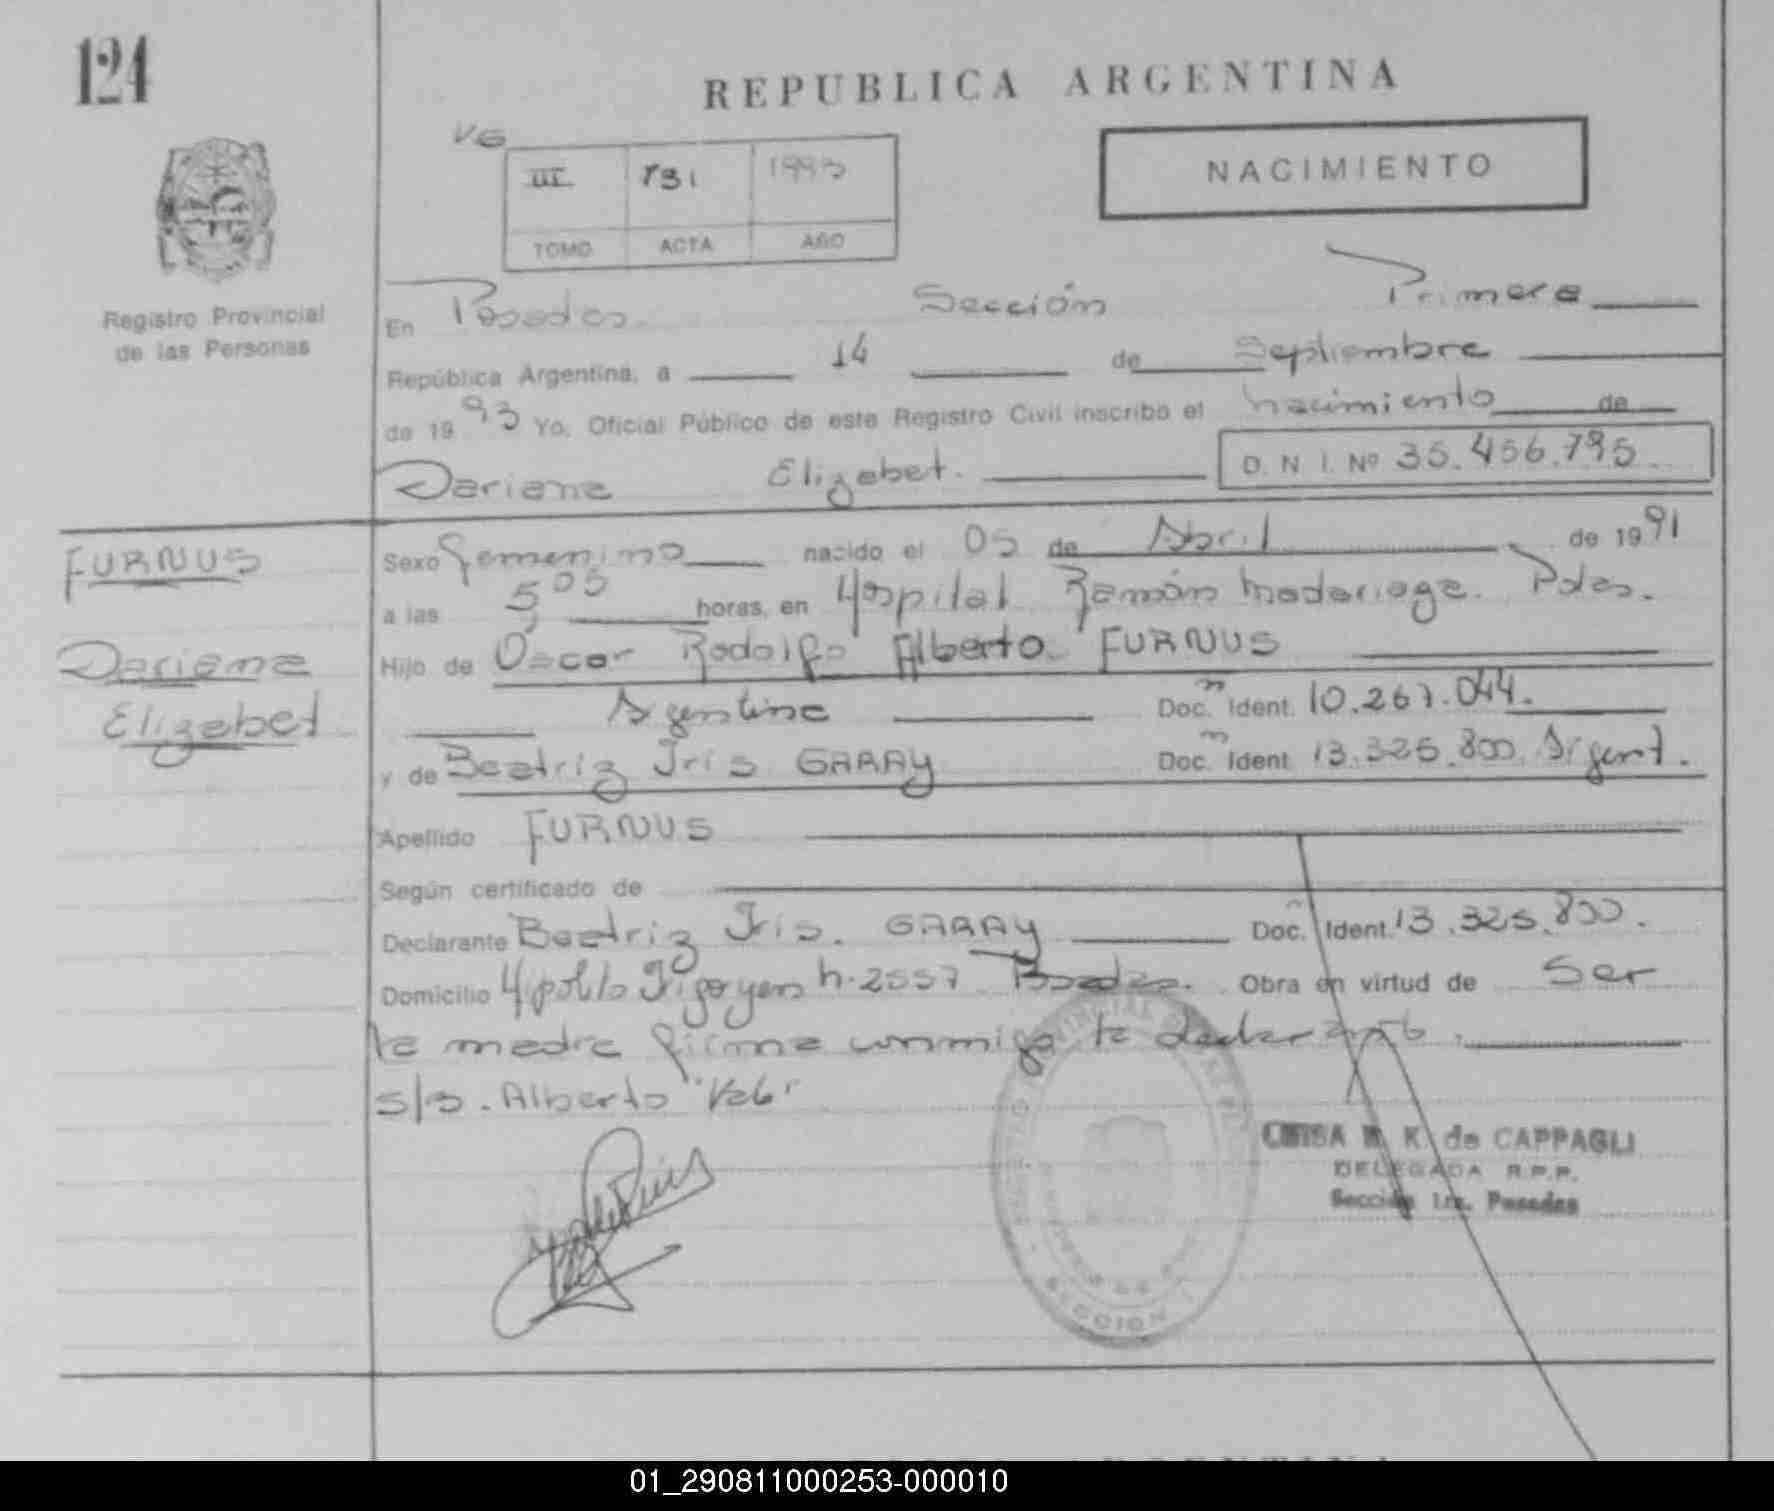 124
REPUBLICA ARGENTINA
VG
III 731 1993
TOMO ACTA AÑO
NACIMIENTO
Registro Provincial
de las Personas
En Posadas. Sección Primera
República Argentina, a 14 de Septiembre
de 1993 Yo, Oficial Público de este Registro Civil inscribo el nacimiento de
Dariana Elizabet. D. N I. Nº 35.456.795
FURNUS
Dariana
Elizabet
Sexo femenino nacido el 05 de Abril de 1991
a las 5,05 horas, en Hospital Ramón Madariaga. Pdas.
Hijo de Oscar Rodolfo Alberto FURNUS
Argentina Doc. Ident. 10.267.044.
y de Beatriz Iris GARAY Doc. Ident. 13.325.800. Argent.
Apellido FURNUS
Según certificado de
Declarante Beatriz Iris. GARAY Doc. Ident. 13.325.800.
Domicilio Hipólito Irigoyen n. 2557 Posadas. Obra en virtud de Ser
la madre firma conmigo la declarante.
s/b. Alberto "Vale"
de CAPPAGLI
DELEGADA R.P.P.
Sección 1ra. Posadas
SECCION
01_290811000253-000010